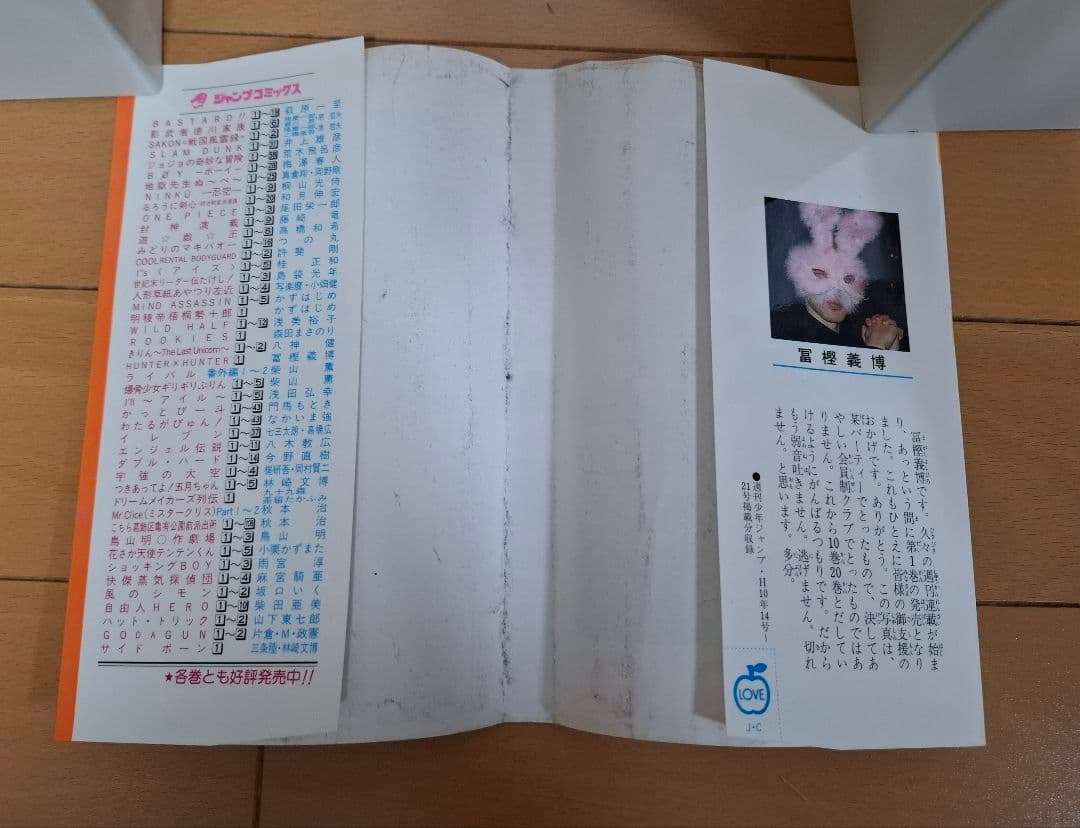 ジャンプコミックス
BASTARD!! 1〜19 萩原一至
影武者徳川家康
SAKON-戦国風雲録-
SLAM DUNK 井上雄彦
ジョジョの奇妙な冒険 荒木飛呂彦
BØY ーボーイー 梅澤春人
地獄先生ぬ〜べ〜 真倉翔・岡野剛
NINKŪ ー忍空ー 桐山光侍
るろうに剣心 和月伸宏
ONE PIECE 尾田栄一郎
封神演義 藤崎竜
遊☆戯☆王 高橋和希
みどりのマキバオー つの丸
COOL RENTAL BODYGUARD 1〜2 許斐剛
I"s〈アイズ〉 桂正和
世紀末リーダー伝たけし! 島袋光年
人形草紙あやつり左近 1〜4 写楽麿・小畑健
MiND ASSASSiN 1〜5 かずはじめ
明稜帝梧桐勢十郎 1 かずはじめ
WILD HALF 浅美裕子
ROOKIES 1 森田まさのり
きりん〜The Last Unicorn〜 1〜2 八神健
HUNTER×HUNTER 1 冨樫義博
ライバル 番外編1〜2 柴山薫
爆骨少女ギリギリぷりん 1〜5 柴山薫
I'll〜アイル〜 1〜5 浅田弘幸
かっとび一斗 門馬もとき
わたるがぴゅん! なかいま強
イレブン 七三太朗・高橋広
エンジェル伝説 八木教広
ダブル・ハード 今野直樹
宇強の大空 1〜4 梶研吾・岡村賢二
つきあってよ!五月ちゃん 1〜5 林崎文博
ドリームメイカーズ列伝 1
Mr.Clice(ミスタークリス) Part 1〜2 秋本治
こちら葛飾区亀有公園前派出所 秋本治
鳥山明○作劇場 1〜3 鳥山明
花さか天使テンテンくん 1〜5 小栗かずまた
ショッキングBOY 1〜3 雨宮淳
快傑蒸気探偵団 1〜4 麻宮騎亜
風のシモン 1〜2 坂口いく
自由人HERO 1〜10 柴田亜美
ハット・トリック 1〜2 山下東七郎
GODAGUN 1〜2 片倉・M・政憲
サイドボーン 1 三条陸・林崎文博
★各巻とも好評発売中!!
冨樫義博
冨樫義博です。久々の週刊連載が始ま
り、あっという間に第1巻の発売となり
ました。これもひとえに皆様の御支援の
おかげです。ありがとう。この写真は、
某パーティーでとったもので、決してあ
やしい会員制クラブでとったものではあ
りません。これから10巻20巻とだしてい
けるようにがんばるつもりです。だから
もう弱音吐きません。逃げません。切れ
ません。と思います。多分。
●週刊少年ジャンプ・H10年14号〜
21号掲載分収録
LOVE
J・C